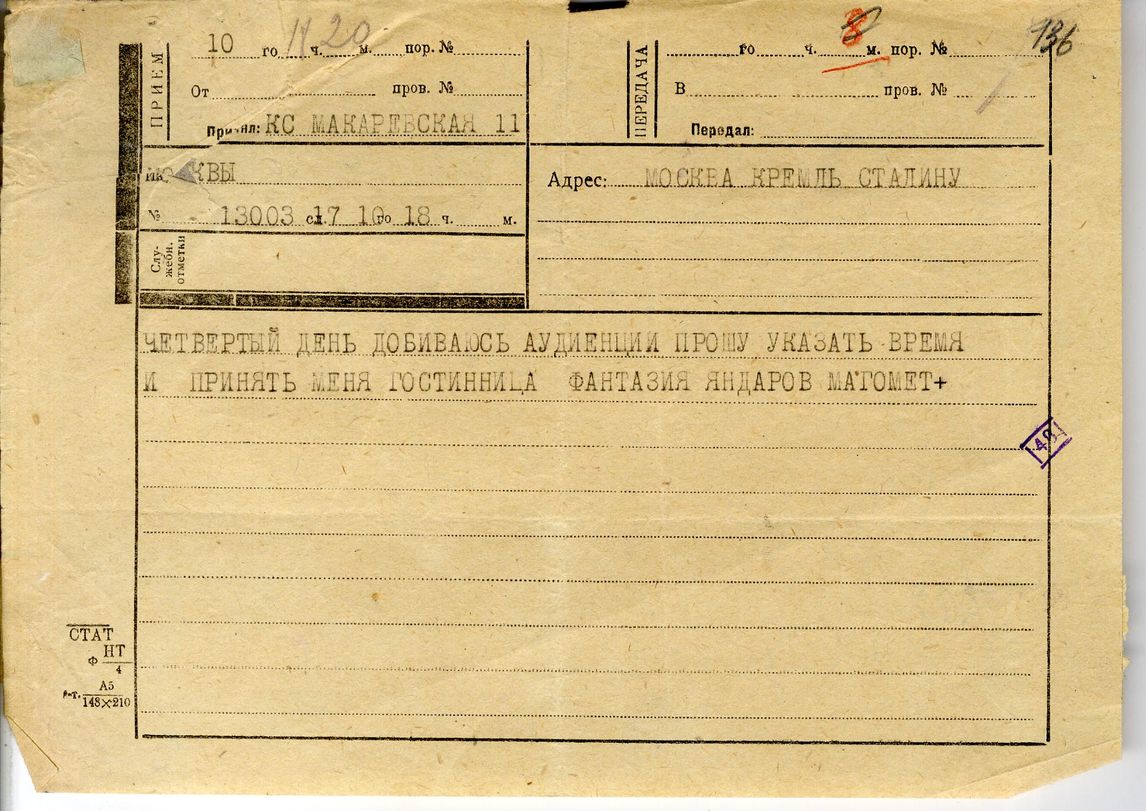 ПРИЕМ
10 го 11 ч. 20 м. пор. №
От пров. №
Принял: КС МАКАРЕВСКАЯ 11
КВЫ
№ 13003 сл. 17 10 го 18 ч. м.
Служебн. отметки
ПЕРЕДАЧА
го ч. 8 м. пор. №
136
В пров. №
Передал:
Адрес: МОСКВА КРЕМЛЬ СТАЛИНУ
ЧЕТВЕРТЫЙ ДЕНЬ ДОБИВАЮСЬ АУДИЕНЦИИ ПРОШУ УКАЗАТЬ ВРЕМЯ
И ПРИНЯТЬ МЕНЯ ГОСТИННИЦА ФАНТАЗИЯ ЯНДАРОВ МАГОМЕТ+
48
СТАТ
НТ
Ф 4
А5
148×210